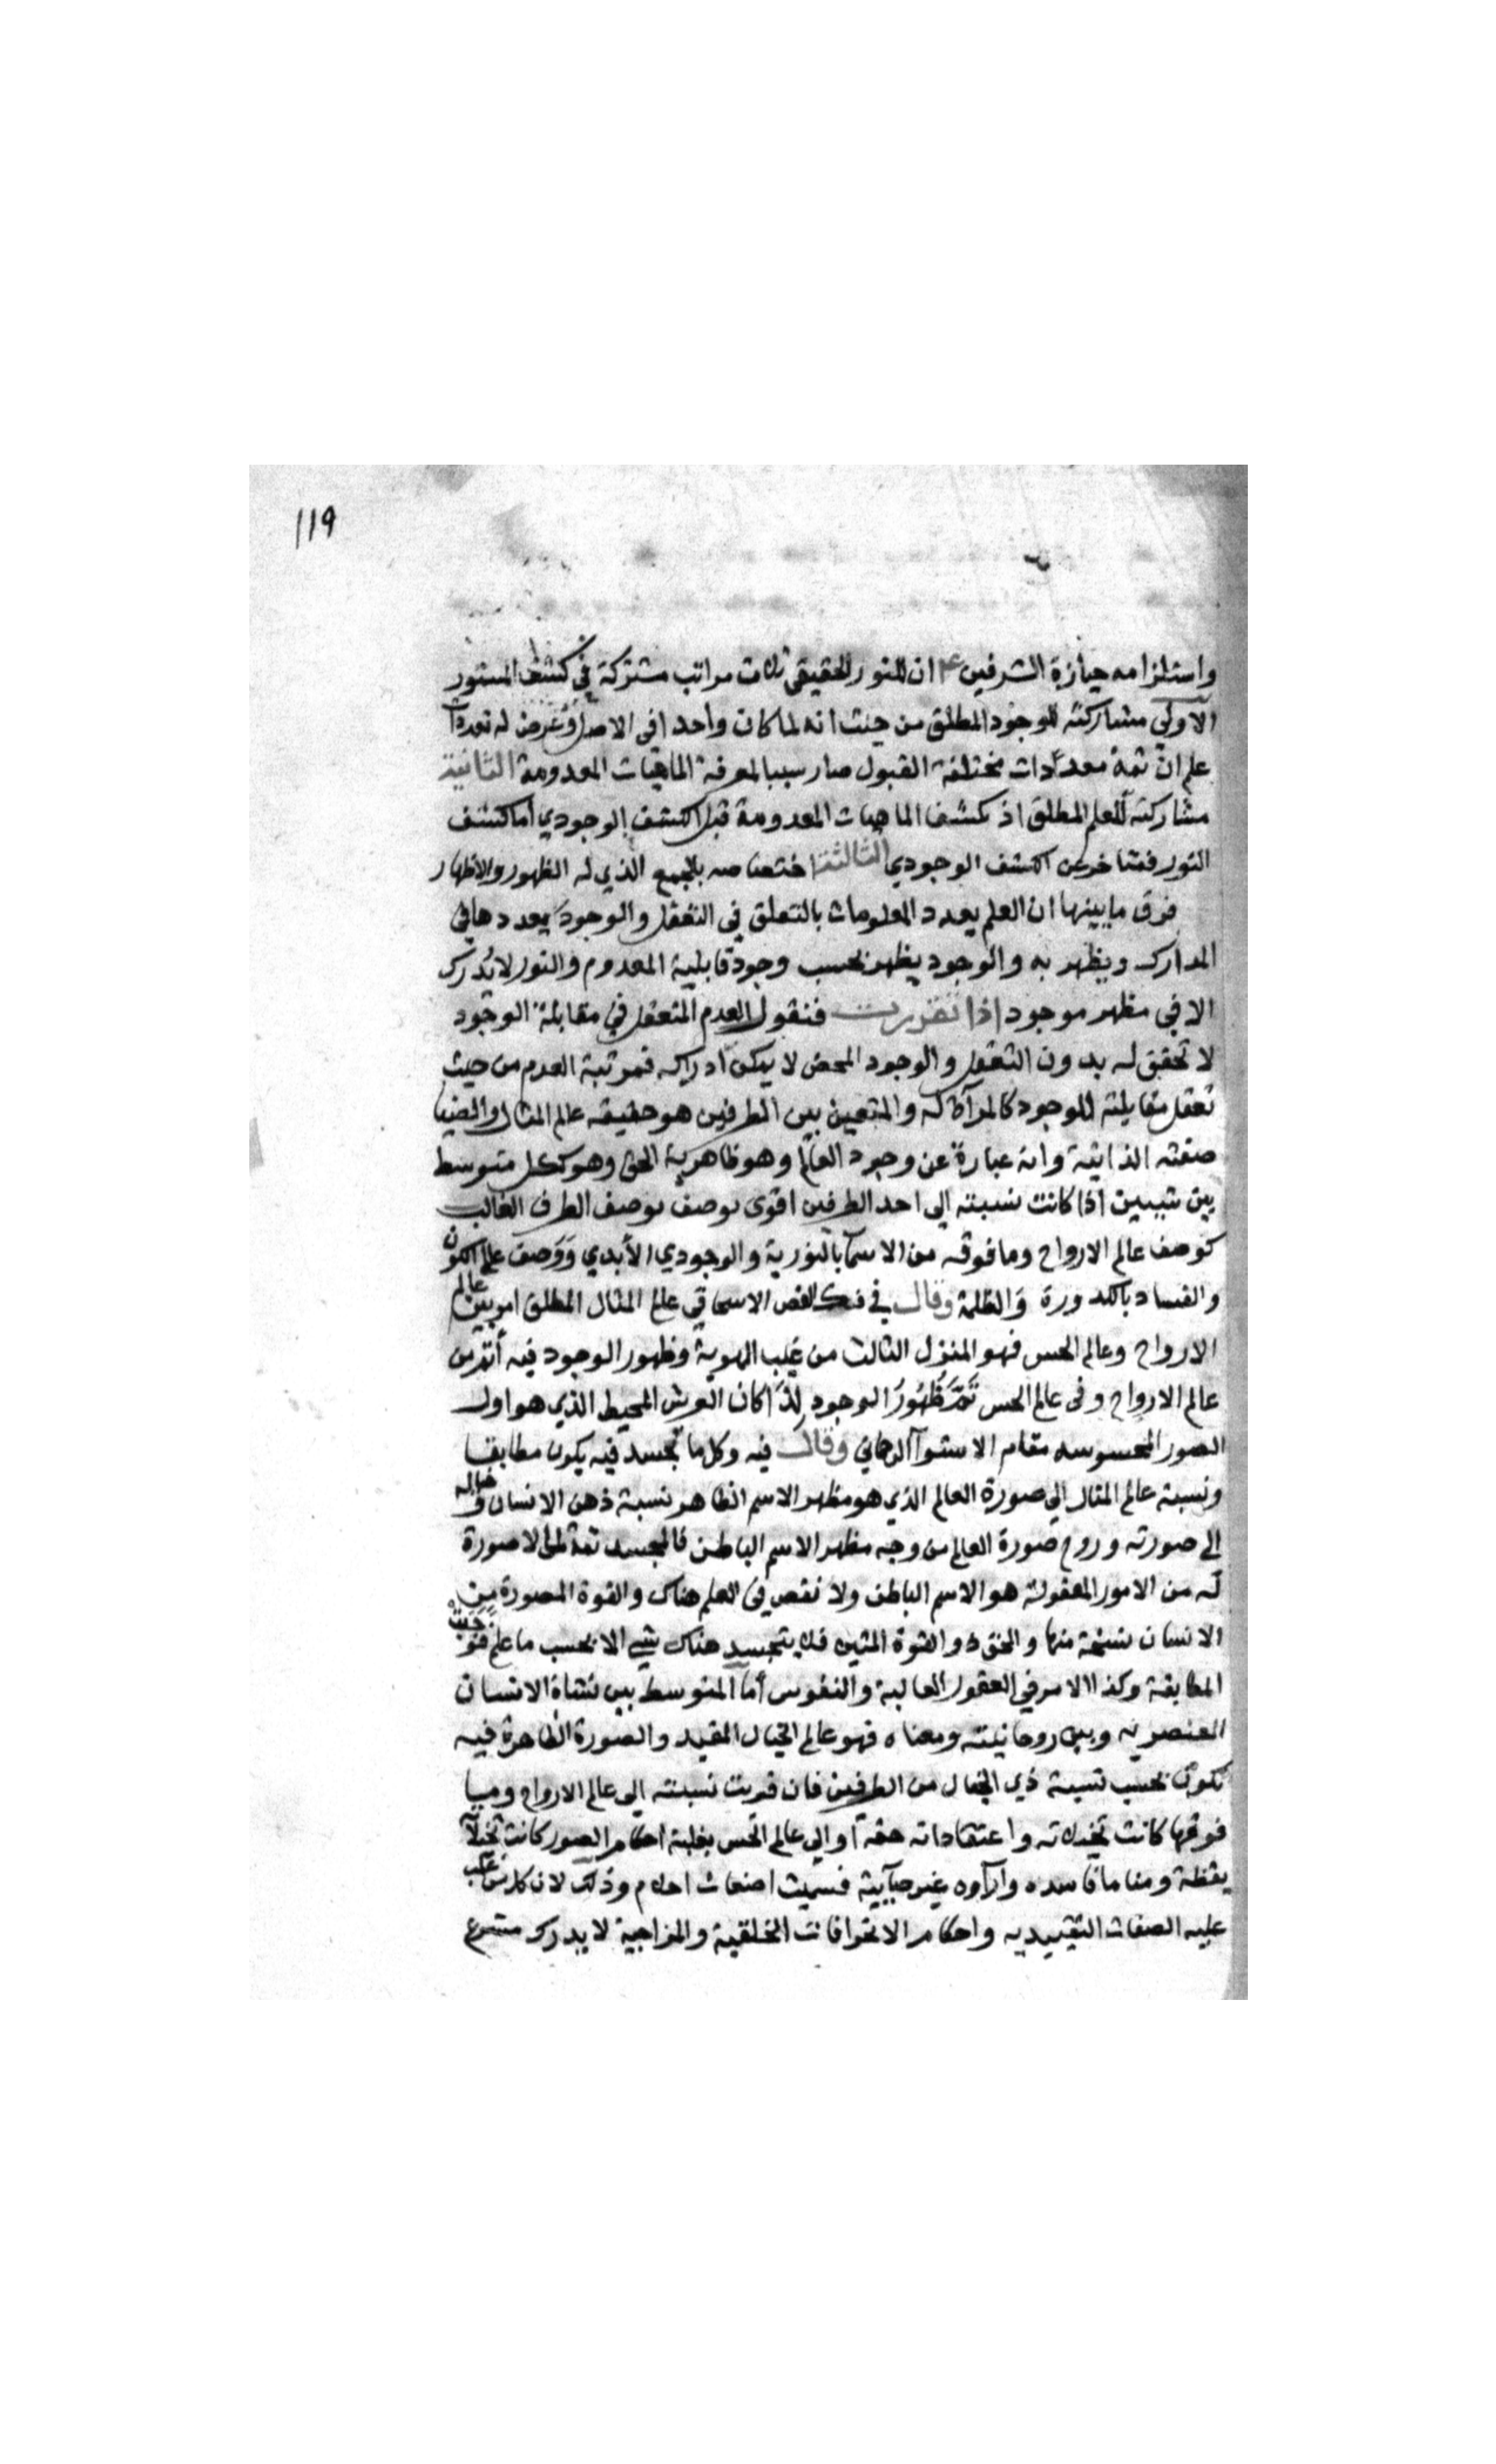 119
واستلزامه حيازة الشرفين ان للنور الحقيقي ثلاث مراتب مشتركة في كشف المستور
الاولى مشاركته للوجود المطلق من حيث انه لما كان واحدا في الاصل وعرض له تعددات
علم ان ثمة معددات مختلفة القبول صار سببا لمعرفة الماهيات المعدومة الثانية
مشاركته للعلم المطلق اذ كشف الماهيات المعدومة قبل الكشف الوجودي اما كشف
النور فمتاخر عن الكشف الوجودي الثالثة اختصاصه بالجمع الذي له الظهور والاظهار
فرق ما بينها ان العلم يعدد المعلومات بالتعلق في التعقل والوجود يعددها في
المدارك ويظهر به والوجود يظهر بحسب وجود قابلية المعدوم والنور لا يُدرك
الا في مظهر موجود اذا تقررت فنقول العدم المتعقل في مقابلة الوجود
لا تحقق له بدون التعقل والوجود المحض لا يمكن ادراكه فمرتبة العدم من حيث
تعقل مقابلته للوجود كالمرآة له والمتعين بين الطرفين هو حقيقة عالم المثال والضيا
صفته الذاتية وانه عبارة عن وجود العالم وهو ظاهرية الحق وهو ككل متوسط
بين شيين اذا كانت نسبته الى احد الطرفين اقوى يوصف بوصف الطرف الغالب
كوصف عالم الارواح وما فوقه من الاسما بالنورية والوجودي الأبدي ووصف عالم الكون
والفساد بالكدورة والظلمة وقال في فك الفص الاسحاقي عالم المثال المطلق امر بين عالم
الارواح وعالم الحس فهو المنزل الثالث من غيب الهوية وظهور الوجود فيه أتم من
عالم الارواح وفي عالم الحس تَمَّ ظُهُورُ الوجود لذا كان العرش المحيط الذي هو اول
الصور المحسوسه مقام الاستوآ الرحماني وقال فيه وكل ما تجسد فيه يكون مطابقا
ونسبة عالم المثال الى صورة العالم الذي هو مظهر الاسم الظاهر نسبة ذهن الانسان وخياله
الى صورته وروح صورة العالم من وجه مظهر الاسم الباطن فالمجسد ثمة لما لا صورة
له من الامور المعقولة هو الاسم الباطن ولا نقص في العلم هناك والقوة المصورة من
الانسان نسخة منها والحق ذو القوة المتين فلا يتجسد هناك شي الا بحسب ما علم فوجبت
المطابقة وكذا الامر في العقول العالية والنفوس أما المتوسط بين نشاة الانسان
العنصريه وبين روحانيته ومعناه فهو عالم الخيال المقيد والصورة الظاهرة فيه
تكون بحسب نسبة ذي الخيال من الطرفين فان قويت نسبته الى عالم الارواح وما
فوقها كانت تخيلاته واعتقاداته حقة او الى عالم الحس بغلبة احكام الصور كانت تخيلاته
يقظة ومناما فاسده وآراوه غير صايبة فسميت اضغاث احلام وذلك لان كل من غلب
عليه الصفات التقييديه واحكام الانحرافات الخلقية والمزاجية لا يدرك